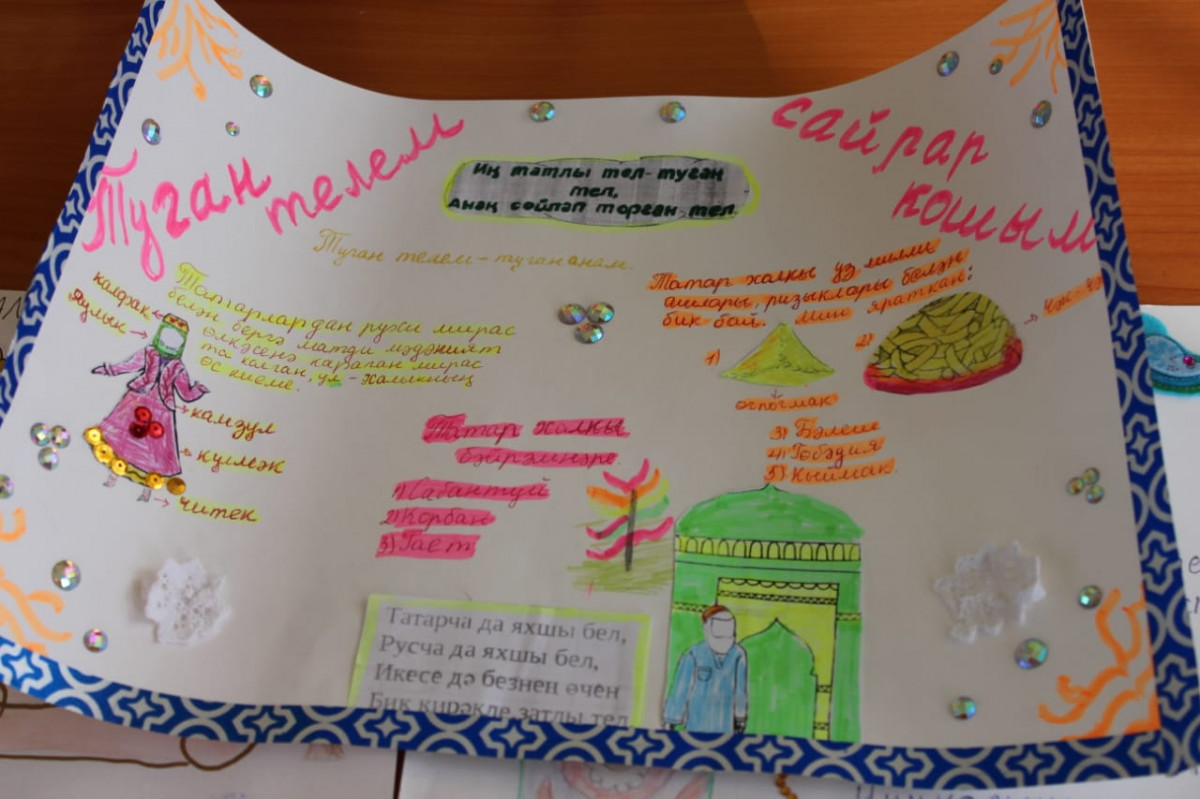 Туган телем
сайрар кошым
Иң татлы тел- туган
тел,
Анаң сөйләп торган тел.
Туган телем – туган анам.
калфак
яулык
Татарлардан рухи мирас
белән бергә матди мәдәният
өлкәсенә караган мирас
та калган, ул – халыкның
өс киеме.
камзул
күлмәк
читек
Татар халкы үз милли
ашлары, ризыклары белән
бик бай. Мин яраткан:
1)
өчпочмак
2)
чәк-
3) Бәлеш
4) Гөбәдия
5) Кыймак.
Татар халкы
бәйрәмнәре.
1) Сабантуй
2) Корбан
3) Гает
Татарча да яхшы бел,
Русча да яхшы бел,
Икесе дә безнең өчен
Бик кирәкле затлы тел